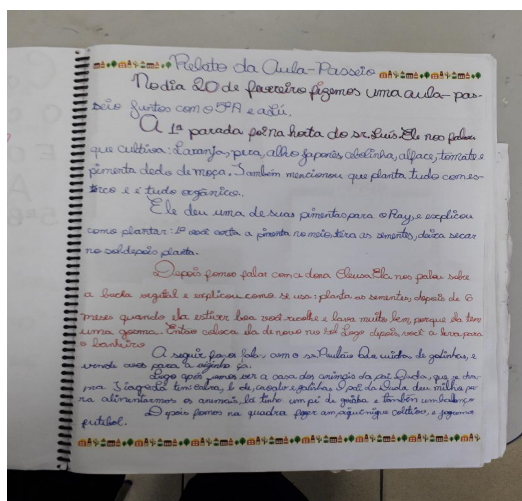 Relato da Aula-Passeio
No dia 20 de fevereiro fizemos uma aula-pas-
seio juntos com o 5ºA e a Lú.
A 1ª parada foi na horta do sr. Luís. Ele nos falou
que cultiva: Laranja, pera, alho japonês, cebolinha, alface, tomate e
pimenta dedo de moça. Também mencionou que planta tudo com es-
terco e é tudo orgânico.
Ele deu uma de suas pimentas para o Ray, e explicou
como plantar: 1º você corta a pimenta no meio, tira as sementes, deixa secar
no sol depois planta.
Depois fomos falar com a dona Cleusa. Ela nos falou sobre
a bucha vegetal e explicou como se usa: planta as sementes, depois de 6
meses quando ela estiver boa você recolhe e lava muito bem, porque ela tem
uma gosma. Então coloca ela de novo no sol. Logo depois, você a leva para
o banheiro
A seguir falar com o sr. Paulão. Que cuida de galinhas, e
vende ovos para a
Logo após, fomos ver a casa dos animais do pai Duda, que se cha-
ma 3 tem cabra, bode, cavalo e galinhas. O pai da Duda deu milha pa-
ra alimentarmos os animais, lá tinha um pé de goiaba e também um balanço
Depois fomos na quadra fazer um piquenique coletivo, e jogamos
futebol.